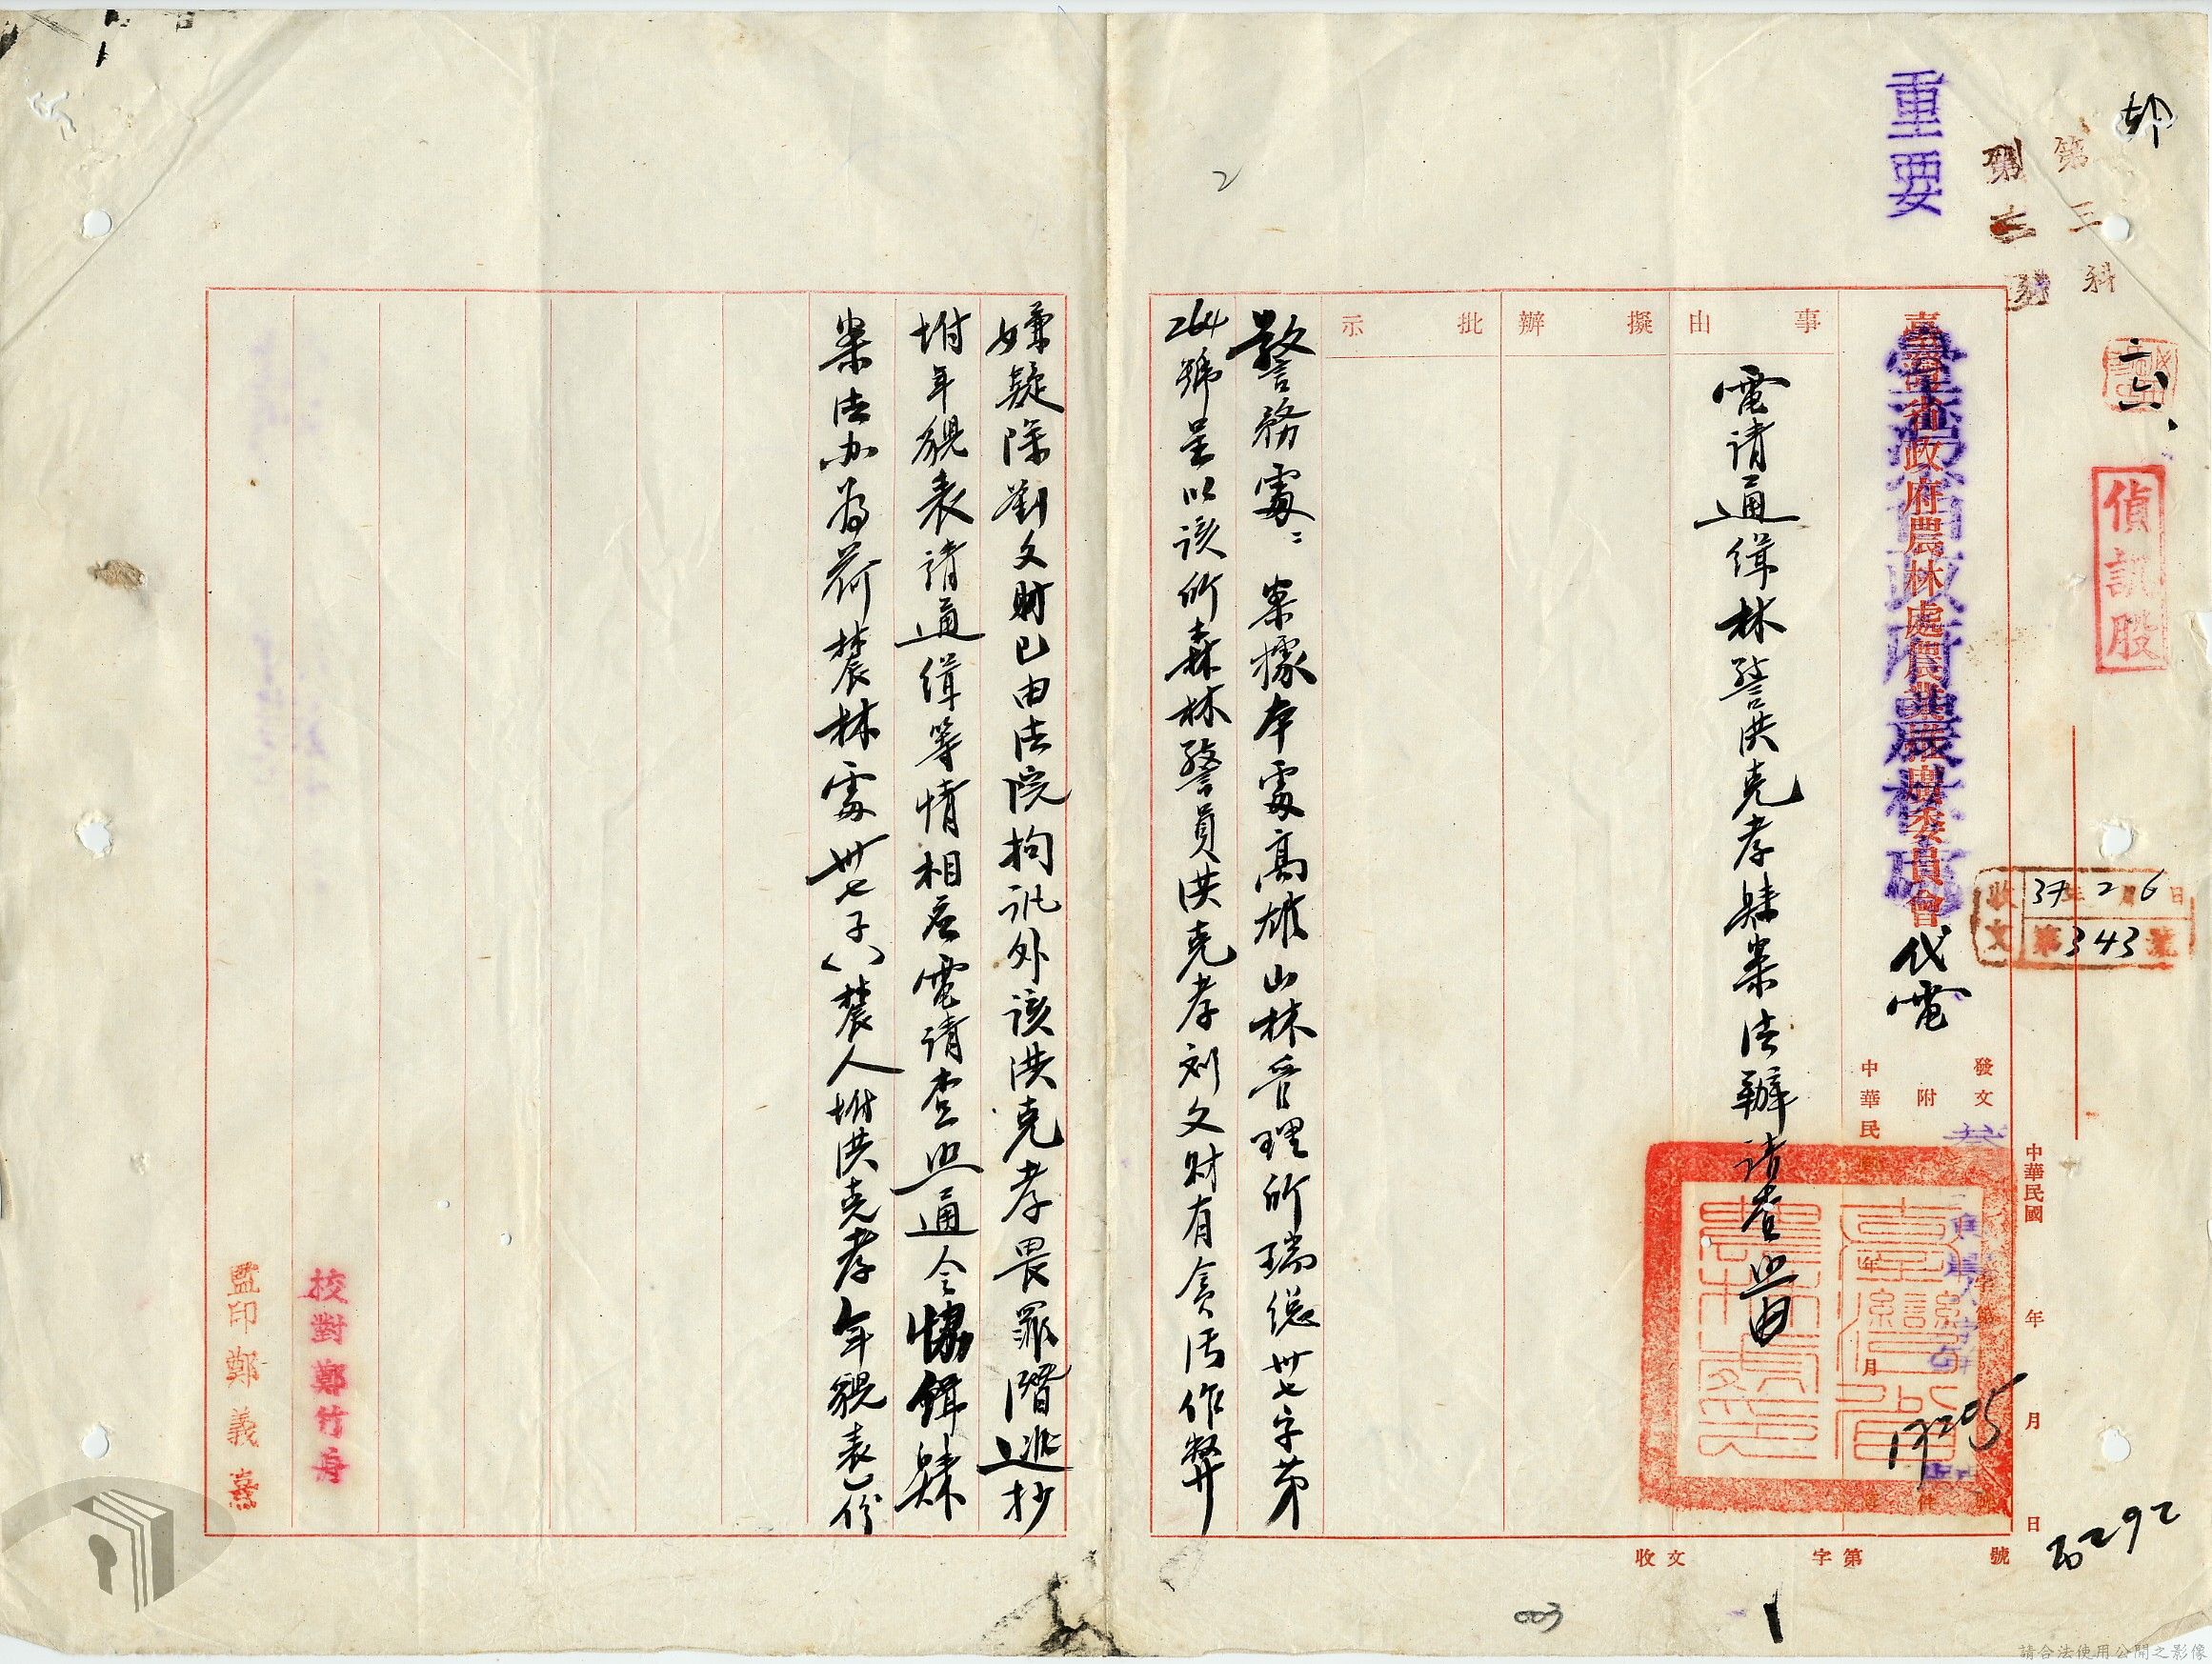 卹
第三科
重要
二六、
偵訊股
收文 37年2月6日
第343號
臺灣省政府農林處
臺灣省政府農林處農業推廣委員會代電
發文
附
件
中華民
年
月
中華民國 年 月 日
17205
收文 字第 號
事由
擬辦
批示
電请通缉林警洪克孝歸案法辦请查照由
警務處：案據本處高雄山林管理所瑞總卅七字第
264號呈以该所森林警員洪克孝刘文财有貪污作弊
嫌疑除劉文財已由法院拘訊外该洪克孝畏罪潛逃抄
坿年貌表请通缉等情相应電请查照通令協缉歸
案法办為荷農林處卅七子()農人坿洪克孝年貌表乙份
校對鄭竹舟
監印鄭義熹
003
2
請合法使用公開之影像